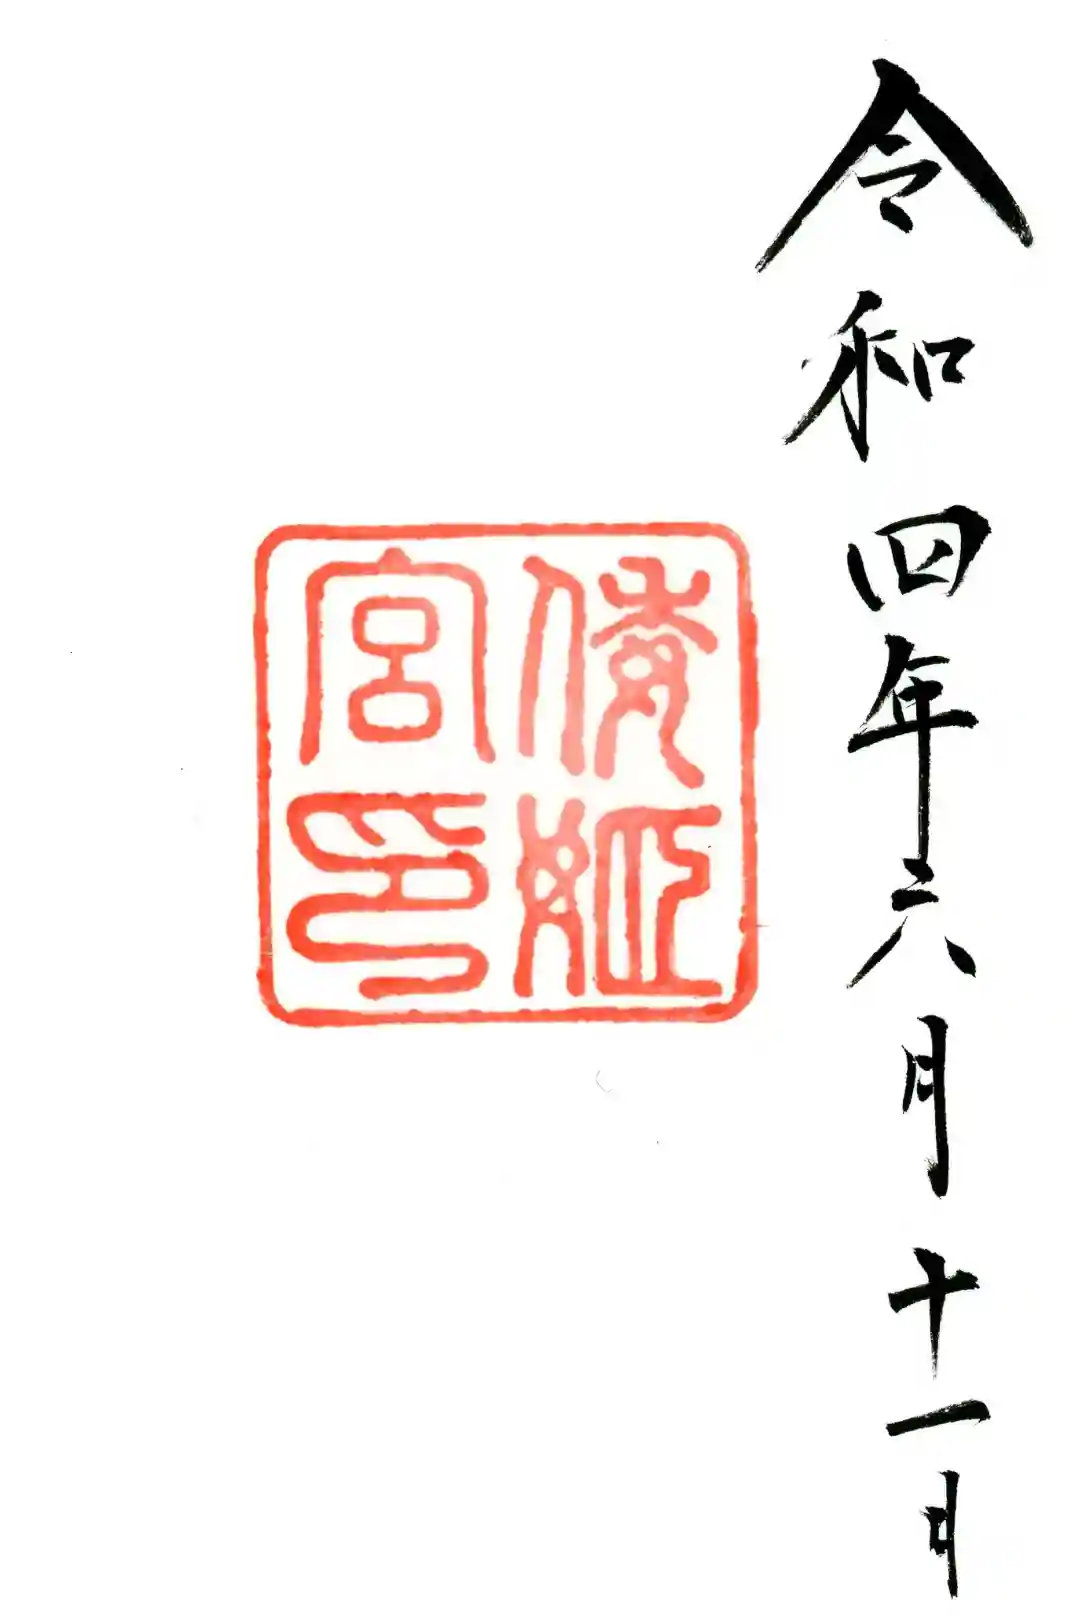 令和四年六月十一日
倭姫
宮印